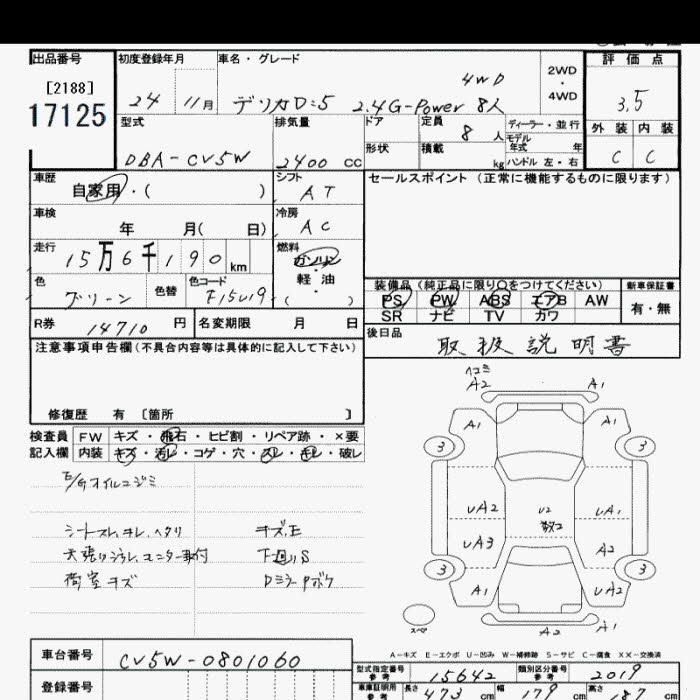 出品番号 初度登録年月 車名・グレード 評価点
[2188] 4WD 2WD・4WD
17125 24 11月 デリカD:5 2.4G-Power 8人 3.5
型式 排気量 ドア 定員 8人 ディーラー・並行 外装 内装
モデル年式 年
DBA-CV5W 2400 cc 形状 積載 kg ハンドル 左・右 C C
車歴 自家用・( ) シフト AT セールスポイント (正常に機能するものに限ります)
車検 年 月( 日) 冷房 AC
走行 15万6千190km 燃料 ガソリン・軽油 ( )
色 グリーン 色替 色コード F15U19
装備品(純正品に限り○をつけてください) 新車保証書
PS PW ABS エアB AW 有・無
SR ナビ TV カワ
R券 14710円 名変期限 月 日 後日品 取扱説明書
注意事項申告欄(不具合内容等は具体的に記入して下さい)
修復歴 有 〔箇所 〕
検査員 FW キズ・飛石・ヒビ割・リペア跡・×要
記入欄 内装 キズ・汚レ・コゲ・穴・スレ・キレ・破レ
E/Gオイルニジミ
シートスレ、キレ、ヘタリ キズ,E
下廻りS
荷室キズ DミラーPボケ
ヘコミ
A2 A1
A1 A1
3 3
UA2 U2 UA1
数コ
UA3 A2
3 3
A1 UA2
スペア A2 A1
A-キズ E-エクボ U-凹み W-補修跡 S-サビ C-腐食 XX-交換済
車台番号 CV5W-0801060
型式指定番号 参考 15642 類別区分番号 参考 2019
登録番号 車庫証明用 参考 長さ 473cm 幅 179cm 高さ 187cm